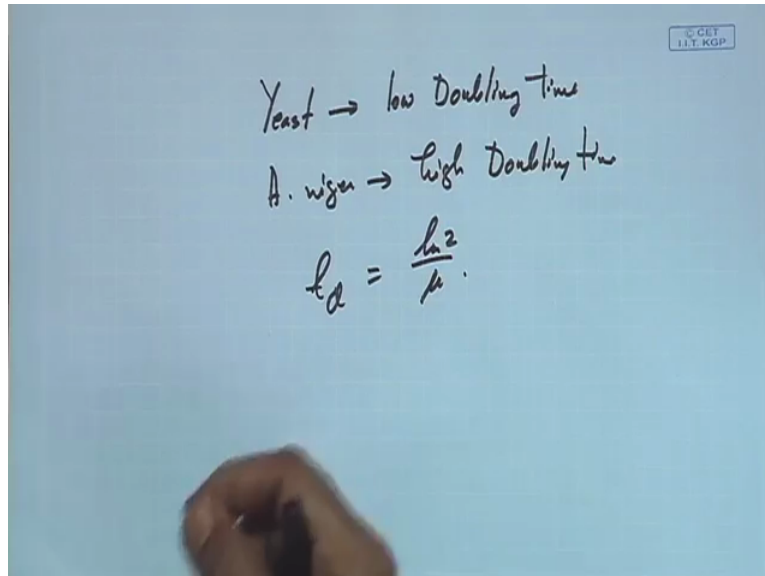 © CET
I.I.T. KGP
Yeast → low Doubling time
A. niger → high Doubling time
t_d = ln2 / μ.